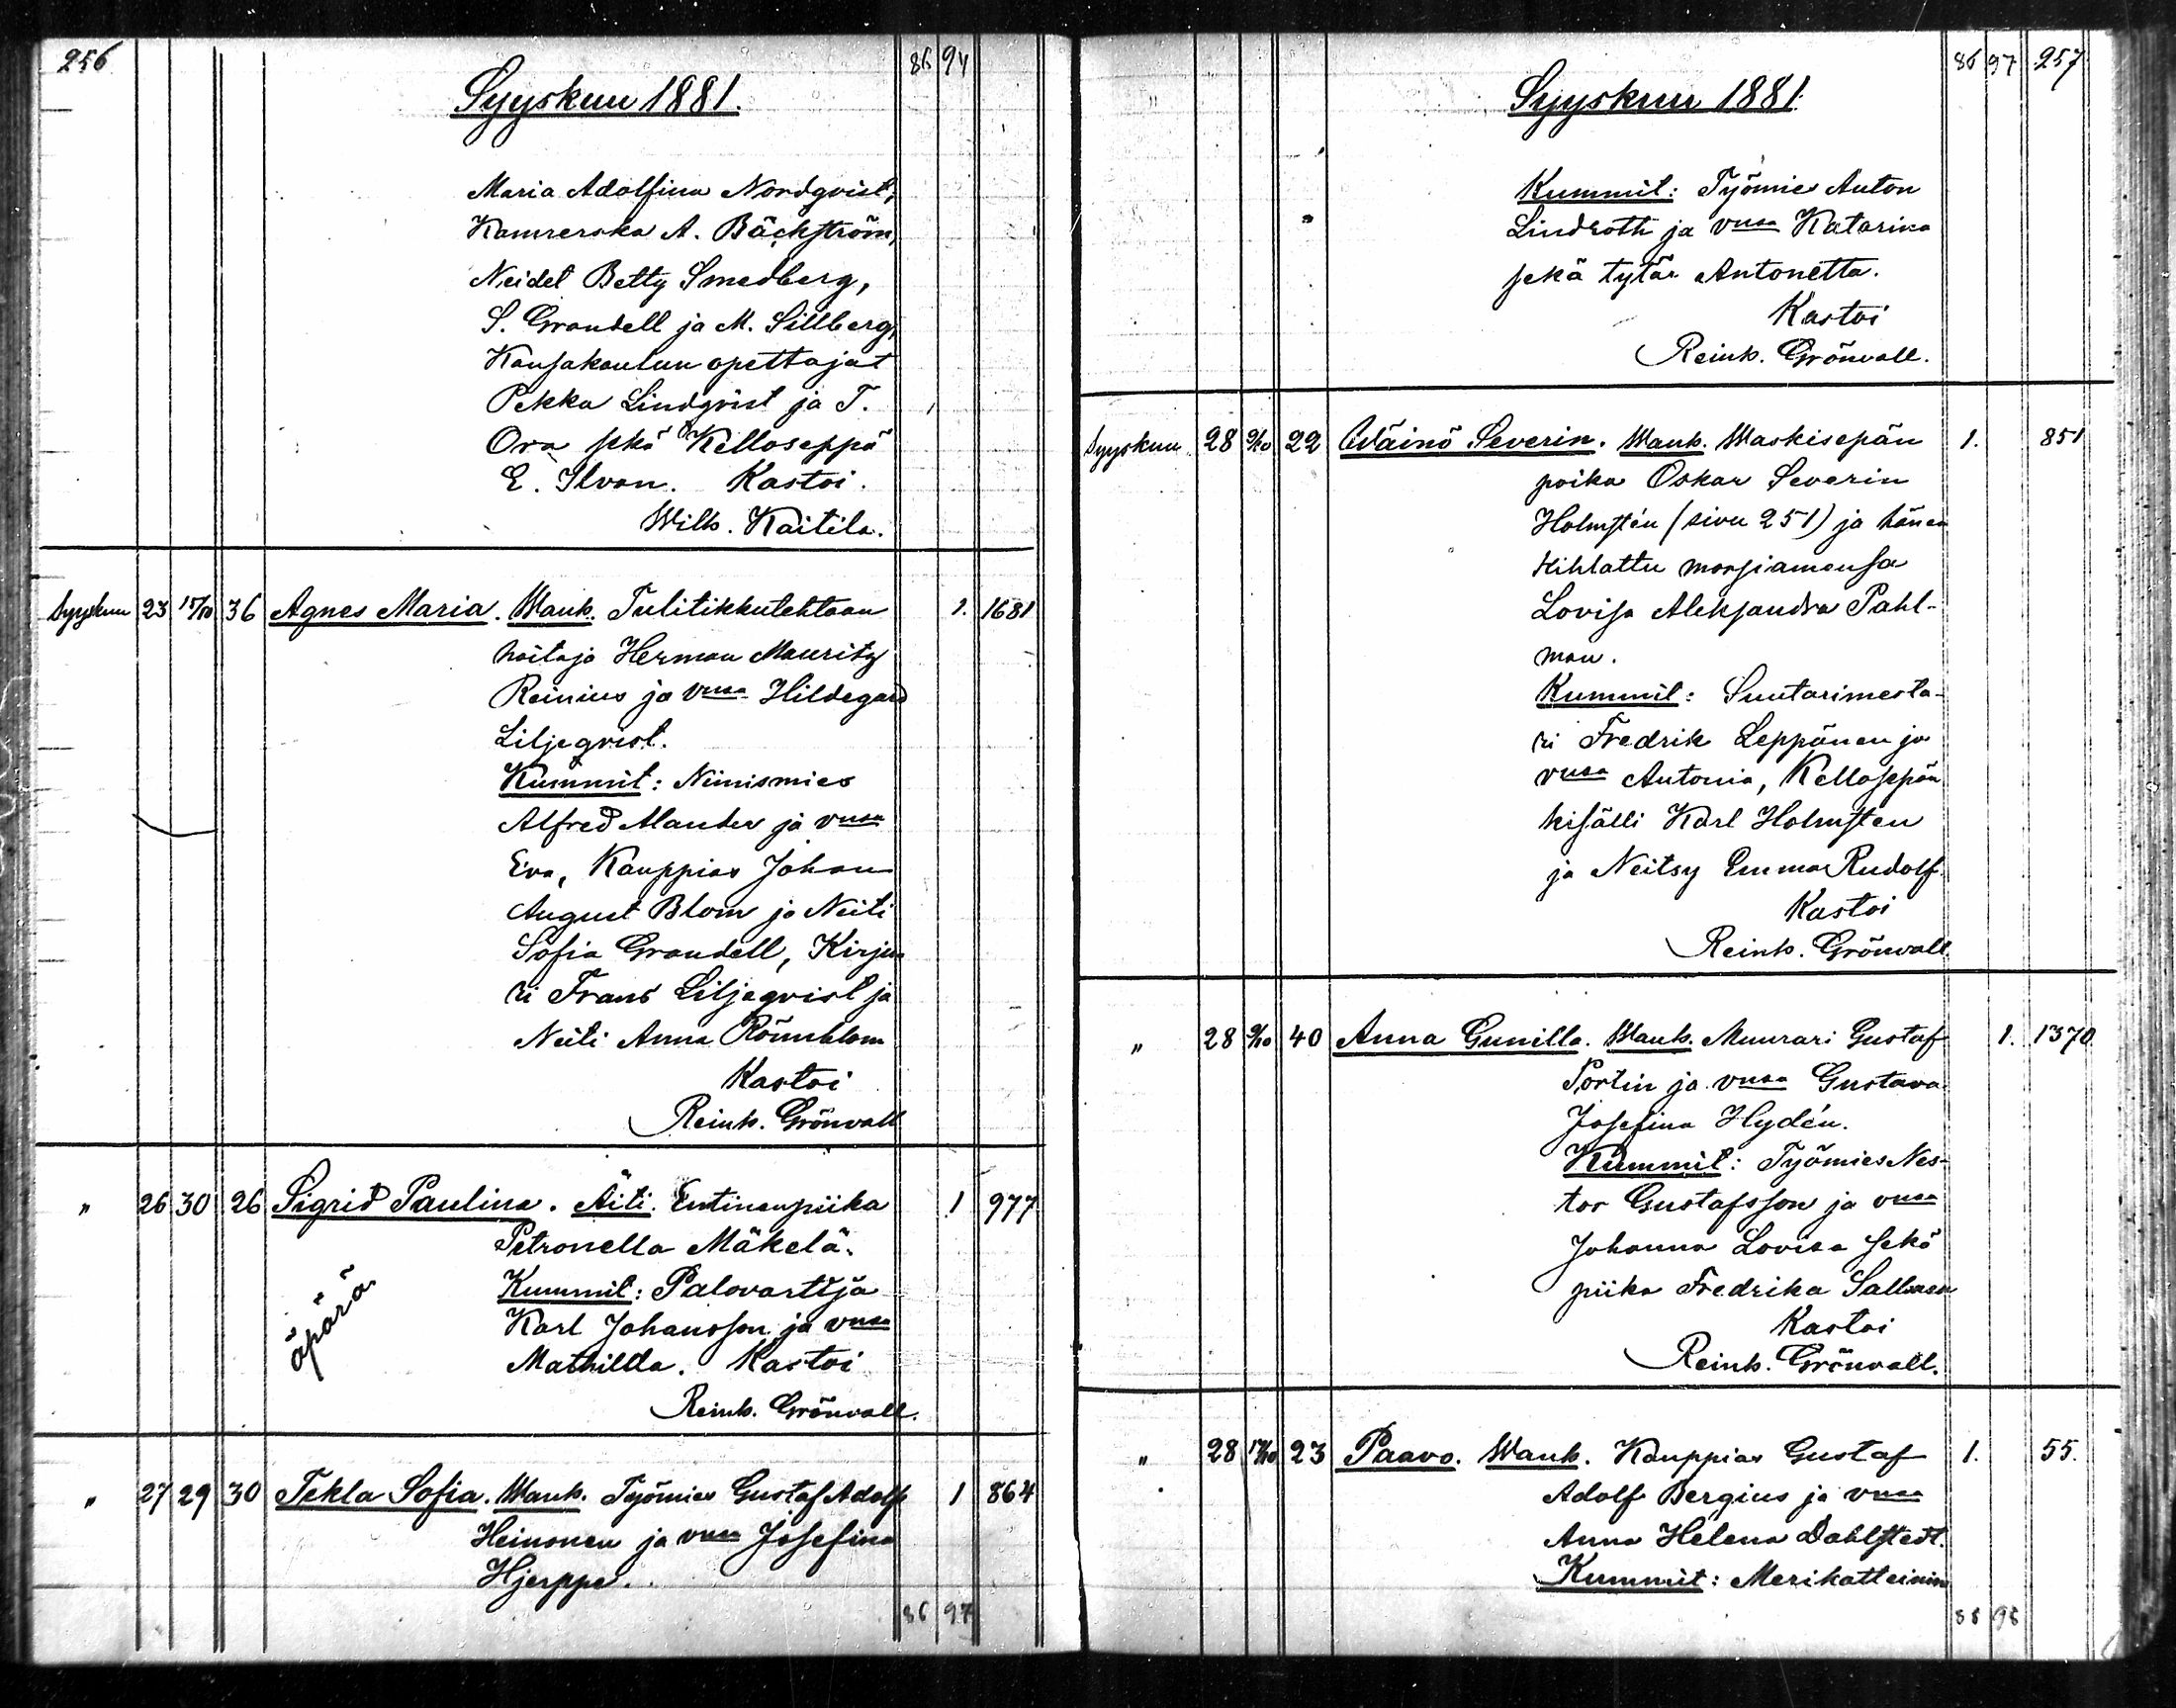 256
86 94
Syyskuu 1881.
Maria Adolfina Nordqvist,
Kamrerska A. Bäckström,
Neidet Betty Smedberg,
S. Grandell ja M. Sillberg,
Kansakoulun opettajat
Pekka Lindqvist ja T.
Ora sekä Kelloseppä
E. Ilvan. Kastoi.
Wilh. Kaitila.
Syyskuu 23 17/10 36 Agnes Maria. Wanh. Tulitikkutehtaan 1. 1681
hoitaja Herman Mauritz
Reinius ja vmsa Hildegard
Liljeqvist.
Kummit: Nimismies
Alfred Alander ja vmsa
Eva, Kauppias Johan
August Blom ja Neiti
Sofia Grandell, Kirju
ri Frans Liljeqvist ja
Neiti Anna Rönnblom
Kastoi
Reinh. Grönvall
" 26 30 26 Sigrid Paulina. Äiti. Entinen piika 1 977
Petronella Mäkelä.
äpärä
Kummit: Palovartija
Karl Johansson ja vmsa
Mathilda. Kastoi
Reinh. Grönvall.
" 27 29 30 Tekla Sofia. Wanh. Työmies Gustaf Adolf 1 864
Heinonen ja vmsa Josefina
Hjerppe.
86 97
86 97 257
Syyskuu 1881
Kummit: Työmies Anton
Lindroth ja vmsa Katarina
sekä tytär Antonetta.
Kastoi
Reinh. Grönvall.
Syyskuu 28 9/10 22 Wäinö Severin. Wanh. Waskisepän 1. 851
poika Oskar Severin
Holmstén (sivu 251) ja hänen
kihlattu morsiamensa
Lovisa Aleksandra Pahl-
man.
Kummit: Suutarimesta-
ri Fredrik Leppänen ja
vmsa Antonia, Kellosepän
kisälli Karl Holmsten
ja Neitsy Emma Rudolf.
Kastoi
Reinh. Grönvall.
" 28 9/10 40 Anna Gunilla. Wanh. Muurari Gustaf 1. 1370
Portin ja vmsa Gustava
Josefina Hydén.
Kummit: Työmies Nes-
tor Gustafsson ja vmsa
Johanna Lovisa sekä
piika Fredrika
Kastoi
Reinh. Grönvall.
" 28 23 Paavo. Wanh. Kauppias Gustaf 1. 55.
Adolf Bergius ja vmsa
Anna Helena Dahlstedt.
Kummit: Merikatteinin
86 98